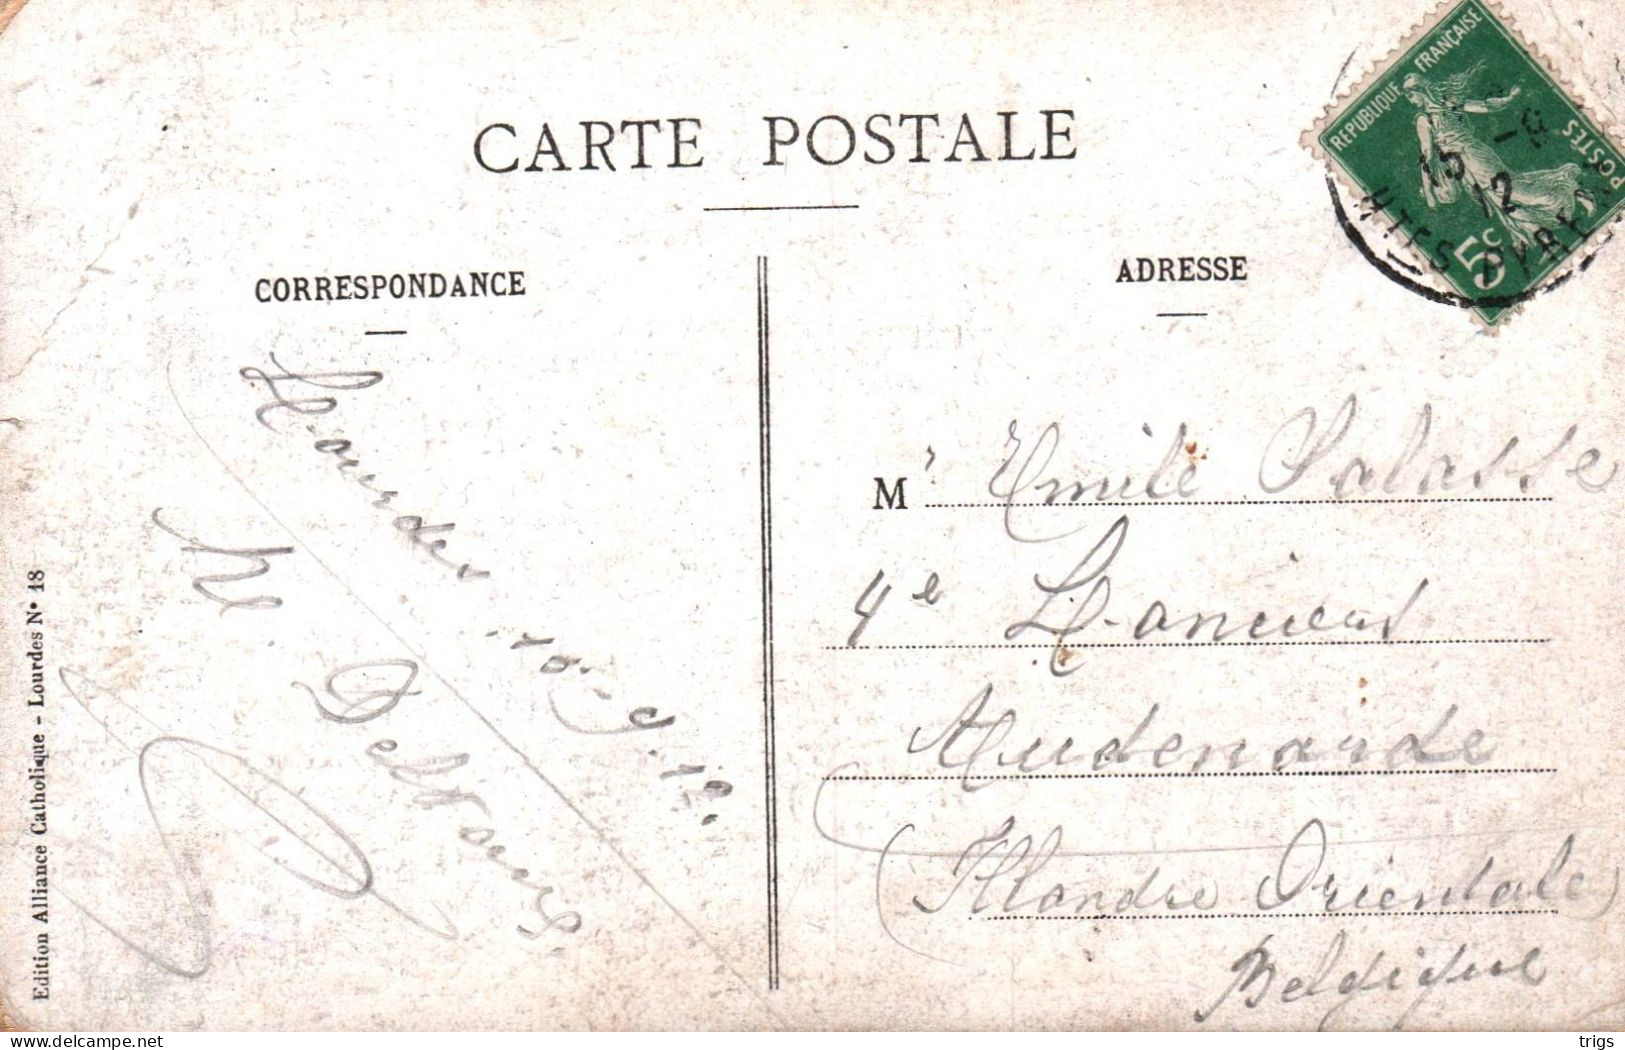 CARTE POSTALE
CORRESPONDANCE
ADRESSE
REPUBLIQUE FRANÇAISE
POSTES
5c
15 -9
12
HTES PYRENEES
Lourdes 10.9.12.
M. Deltour
Mr Emile Salasse
4e Lanciers
Audenarde
(Flandre Orientale)
Belgique
Edition Alliance Catholique - Lourdes N° 18
delcampe.net
trigs